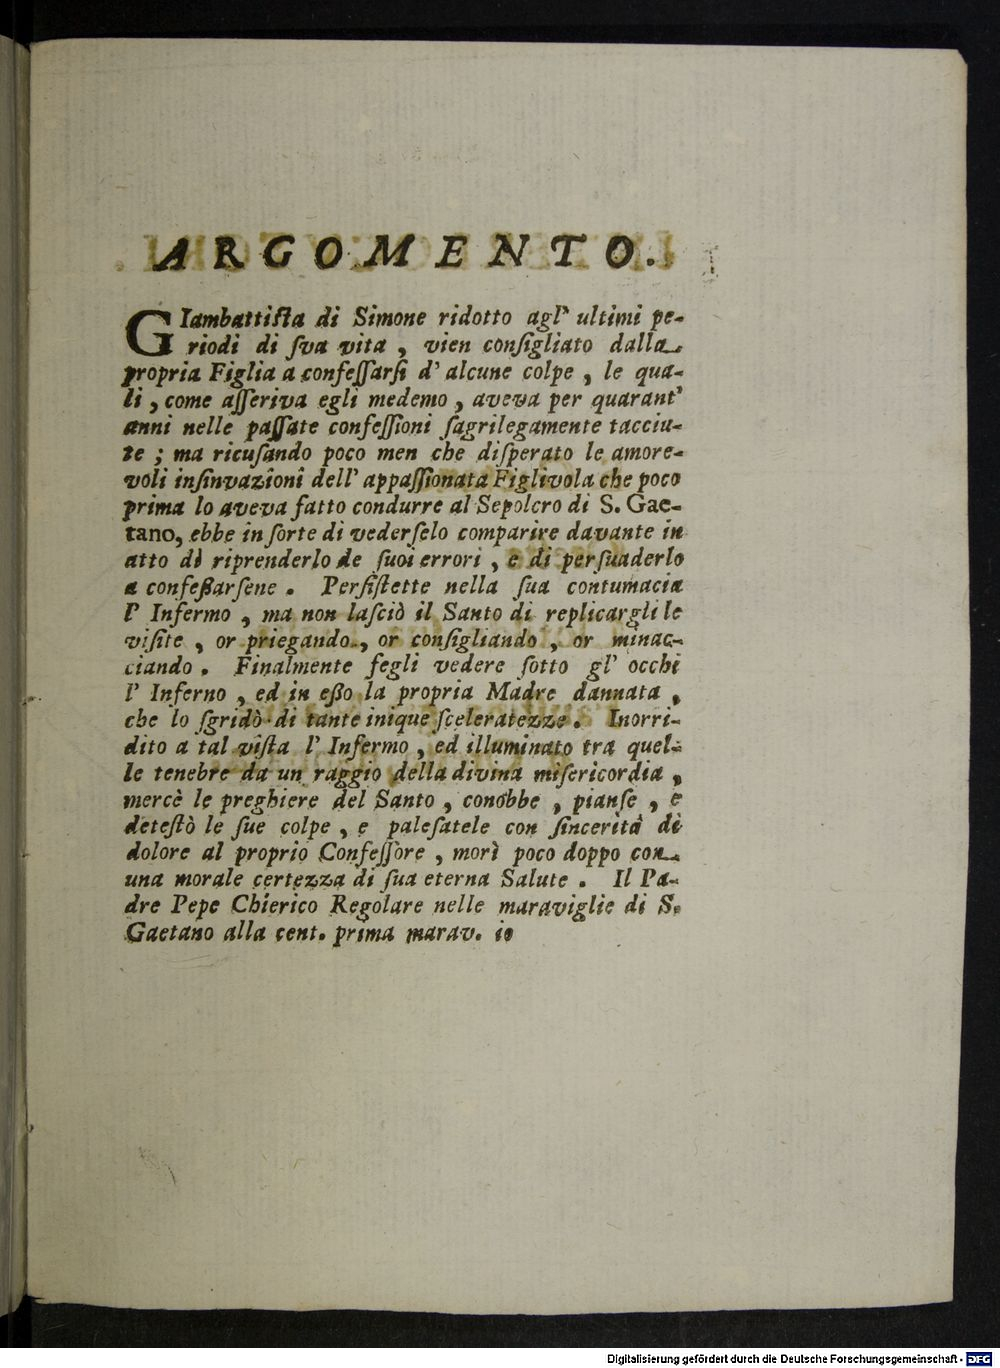 ARGOMENTO.
GIambattiſta di Simone ridotto agl' ultimi pe-
riodi di ſva vita, vien conſigliato dalla
propria Figlia a confeſſarſi d' alcune colpe, le qua-
li, come aſſeriva egli medemo, aveva per quarant'
anni nelle paſſate confeſſioni ſagrilegamente tacciu-
te; ma ricuſando poco men che diſperato le amore-
voli inſinvazioni dell' appaſſionata Figlivola che poco
prima lo aveva fatto condurre al Sepolcro di S. Gae-
tano, ebbe in ſorte di vederſelo comparire davante in
atto di riprenderlo de ſuoi errori, e di perſuaderlo
a confeßarſene. Perſiſtette nella ſua contumacia
l' Infermo, ma non laſciò il Santo di replicargli le
viſite, or priegando, or conſigliando, or minac-
ciando. Finalmente fegli vedere ſotto gl' occhi
l' Inferno, ed in eßo la propria Madre dannata,
che lo ſgridò di tante inique ſceleratezze. Inorri-
dito a tal viſta l' Infermo, ed illuminato tra quel-
le tenebre da un raggio della divina miſericordia,
mercè le preghiere del Santo, conobbe, pianſe, e
deteſtò le ſue colpe, e paleſatele con ſincerità di
dolore al proprio Confeſſore, morì poco doppo con
una morale certezza di ſua eterna Salute. Il Pa-
dre Pepe Chierico Regolare nelle maraviglie di S.
Gaetano alla cent. prima marav. 10
Digitalisierung gefördert durch die Deutsche Forschungsgemeinschaft - DFG